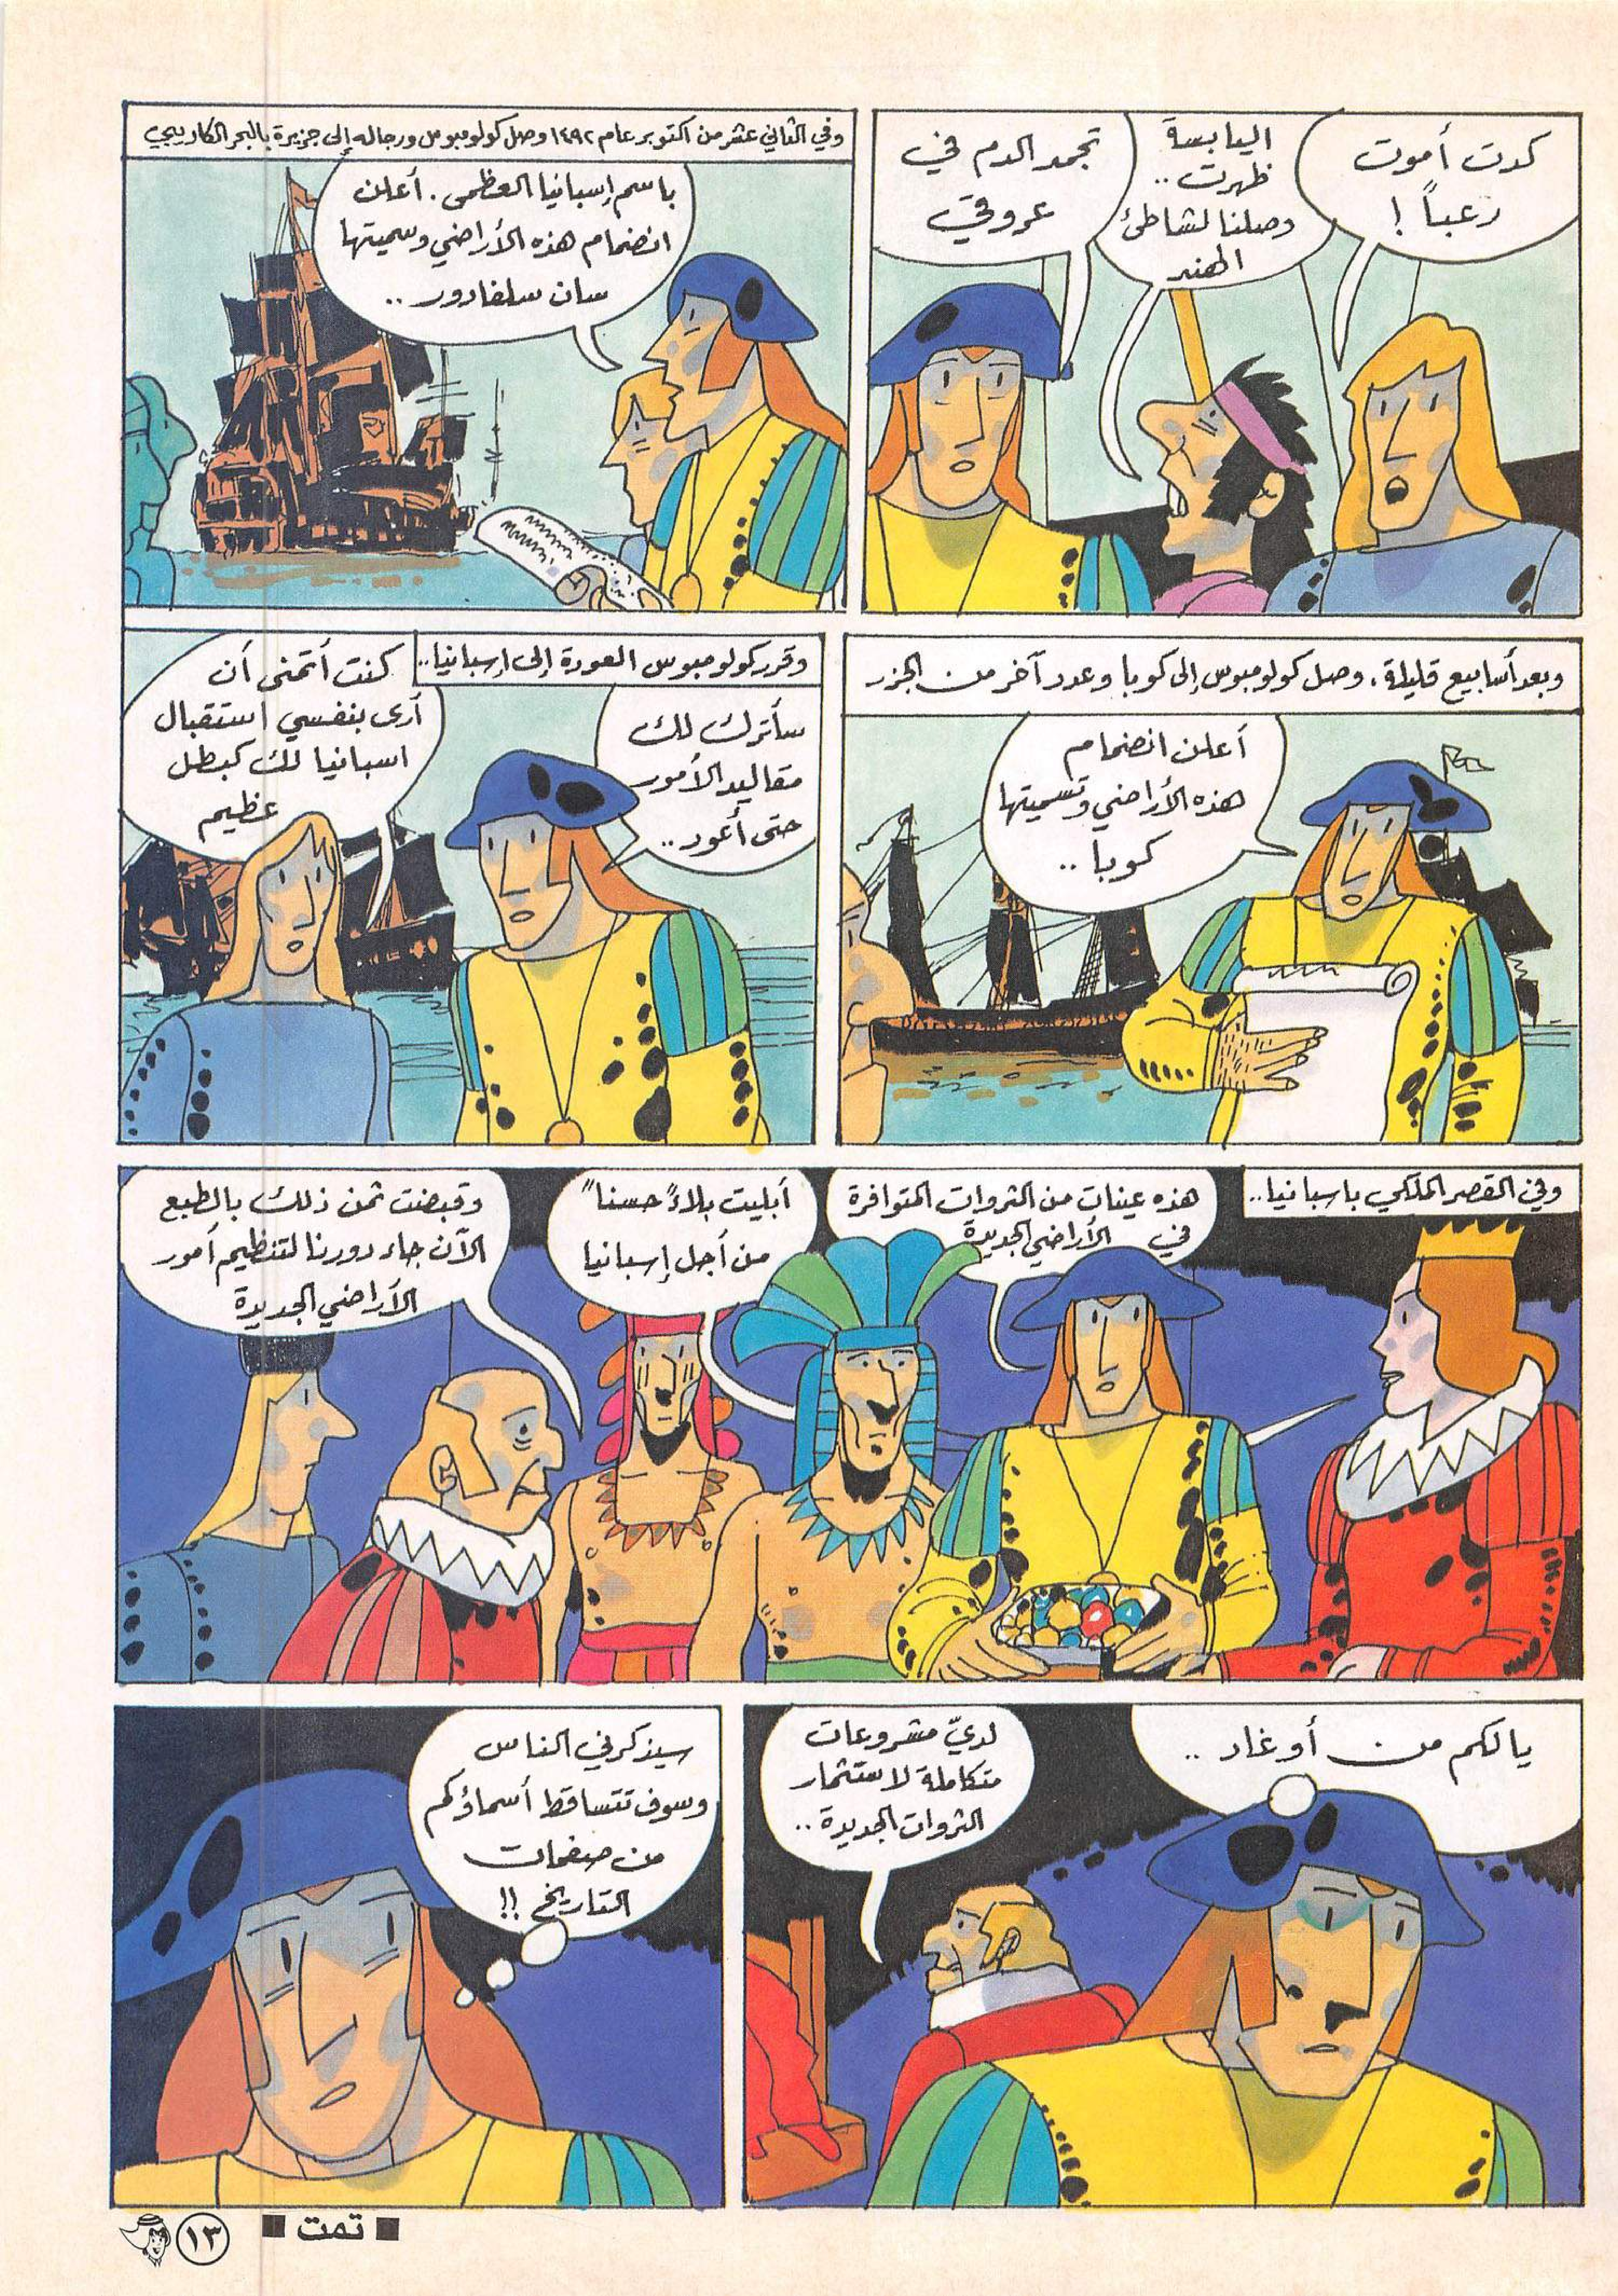 كدت أموت
رعباً !
اليابسة
ظهرت ..
وصلنا لشاطئ
الهند
تجمد الدم في
عروقي
وفي الثاني عشر من اكتوبر عام ١٤٩٢ وصل كولومبوس ورجاله إلى جزيرة بالبحر الكاريبي
باسم إسبانيا العظمى . أعلن
انضمام هذه الأراضي وسميتها
سان سلفادور ..
وبعد أسابيع قليلة ، وصل كولومبوس إلى كوبا وعدد آخر من الجزر
أعلن انضمام
هذه الأراضي وتسميتها
كوبا ..
وقرر كولومبوس العودة إلى إسبانيا ..
سأترك لك
مقاليد الأمور
حتى أعود ..
كنت أتمنى أن
أرى بنفسي استقبال
اسبانيا لك كبطل
عظيم
وفي القصر الملكي باسبانيا ..
هذه عينات من الثروات المتوافرة
في الأراضي الجديدة
أبليت بلاءً حسناً
من أجل إسبانيا
وقبضت ثمن ذلك بالطبع
الآن جاء دورنا لتنظيم أمور
الأراضي الجديدة
يالكم من أوغاد ..
لديّ مشروعات
متكاملة لاستثمار
الثروات الجديدة ..
سيذكرني الناس
وسوف تتساقط أسماؤكم
من صفحات
التاريخ !!
■ تمت ■
١٣